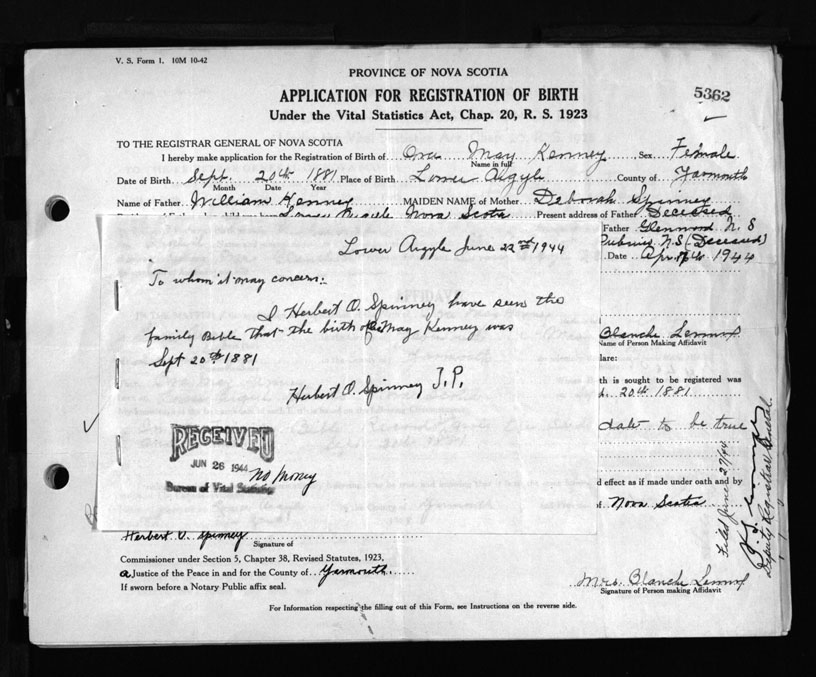 V. S. Form 1. 10M 10-42
PROVINCE OF NOVA SCOTIA
5362
APPLICATION FOR REGISTRATION OF BIRTH
Under the Vital Statistics Act, Chap. 20, R. S. 1923
TO THE REGISTRAR GENERAL OF NOVA SCOTIA
I hereby make application for the Registration of Birth of Ora May Kenney, Sex Female
Name in full
Date of Birth Sept. 20th 1881 Place of Birth Lower Argyle County of Yarmouth
Month Date Year
Name of Father William Kenney MAIDEN NAME of Mother Deborah Spinney
Lower Argyle Nova Scotia Present address of Father Deceased
Father Glenwood N. S
Pubnico N.S (Deceased)
Date Apr. 17th 1944
Lower Argyle June 22nd 1944
To whom it may concern:
I Herbert O. Spinney have seen the
family Bible that the birth of May Kenney was
Sept 20th 1881
Herbert O. Spinney J.P.
RECEIVED
JUN 26 1944
Bureau of Vital Statistics
no money
Blanche Lennox
Name of Person Making Affidavit
lare:
th is sought to be registered was
20th 1881
date to be true
d effect as if made under oath and by
f Nova Scotia
Filed June 27/44
Deputy Registrar General
Herbert O. Spinney
Signature of
Commissioner under Section 5, Chapter 38, Revised Statutes, 1923,
a Justice of the Peace in and for the County of Yarmouth
If sworn before a Notary Public affix seal.
Mrs. Blanche Lennox
Signature of Person making Affidavit
For Information respecting the filling out of this Form, see Instructions on the reverse side.